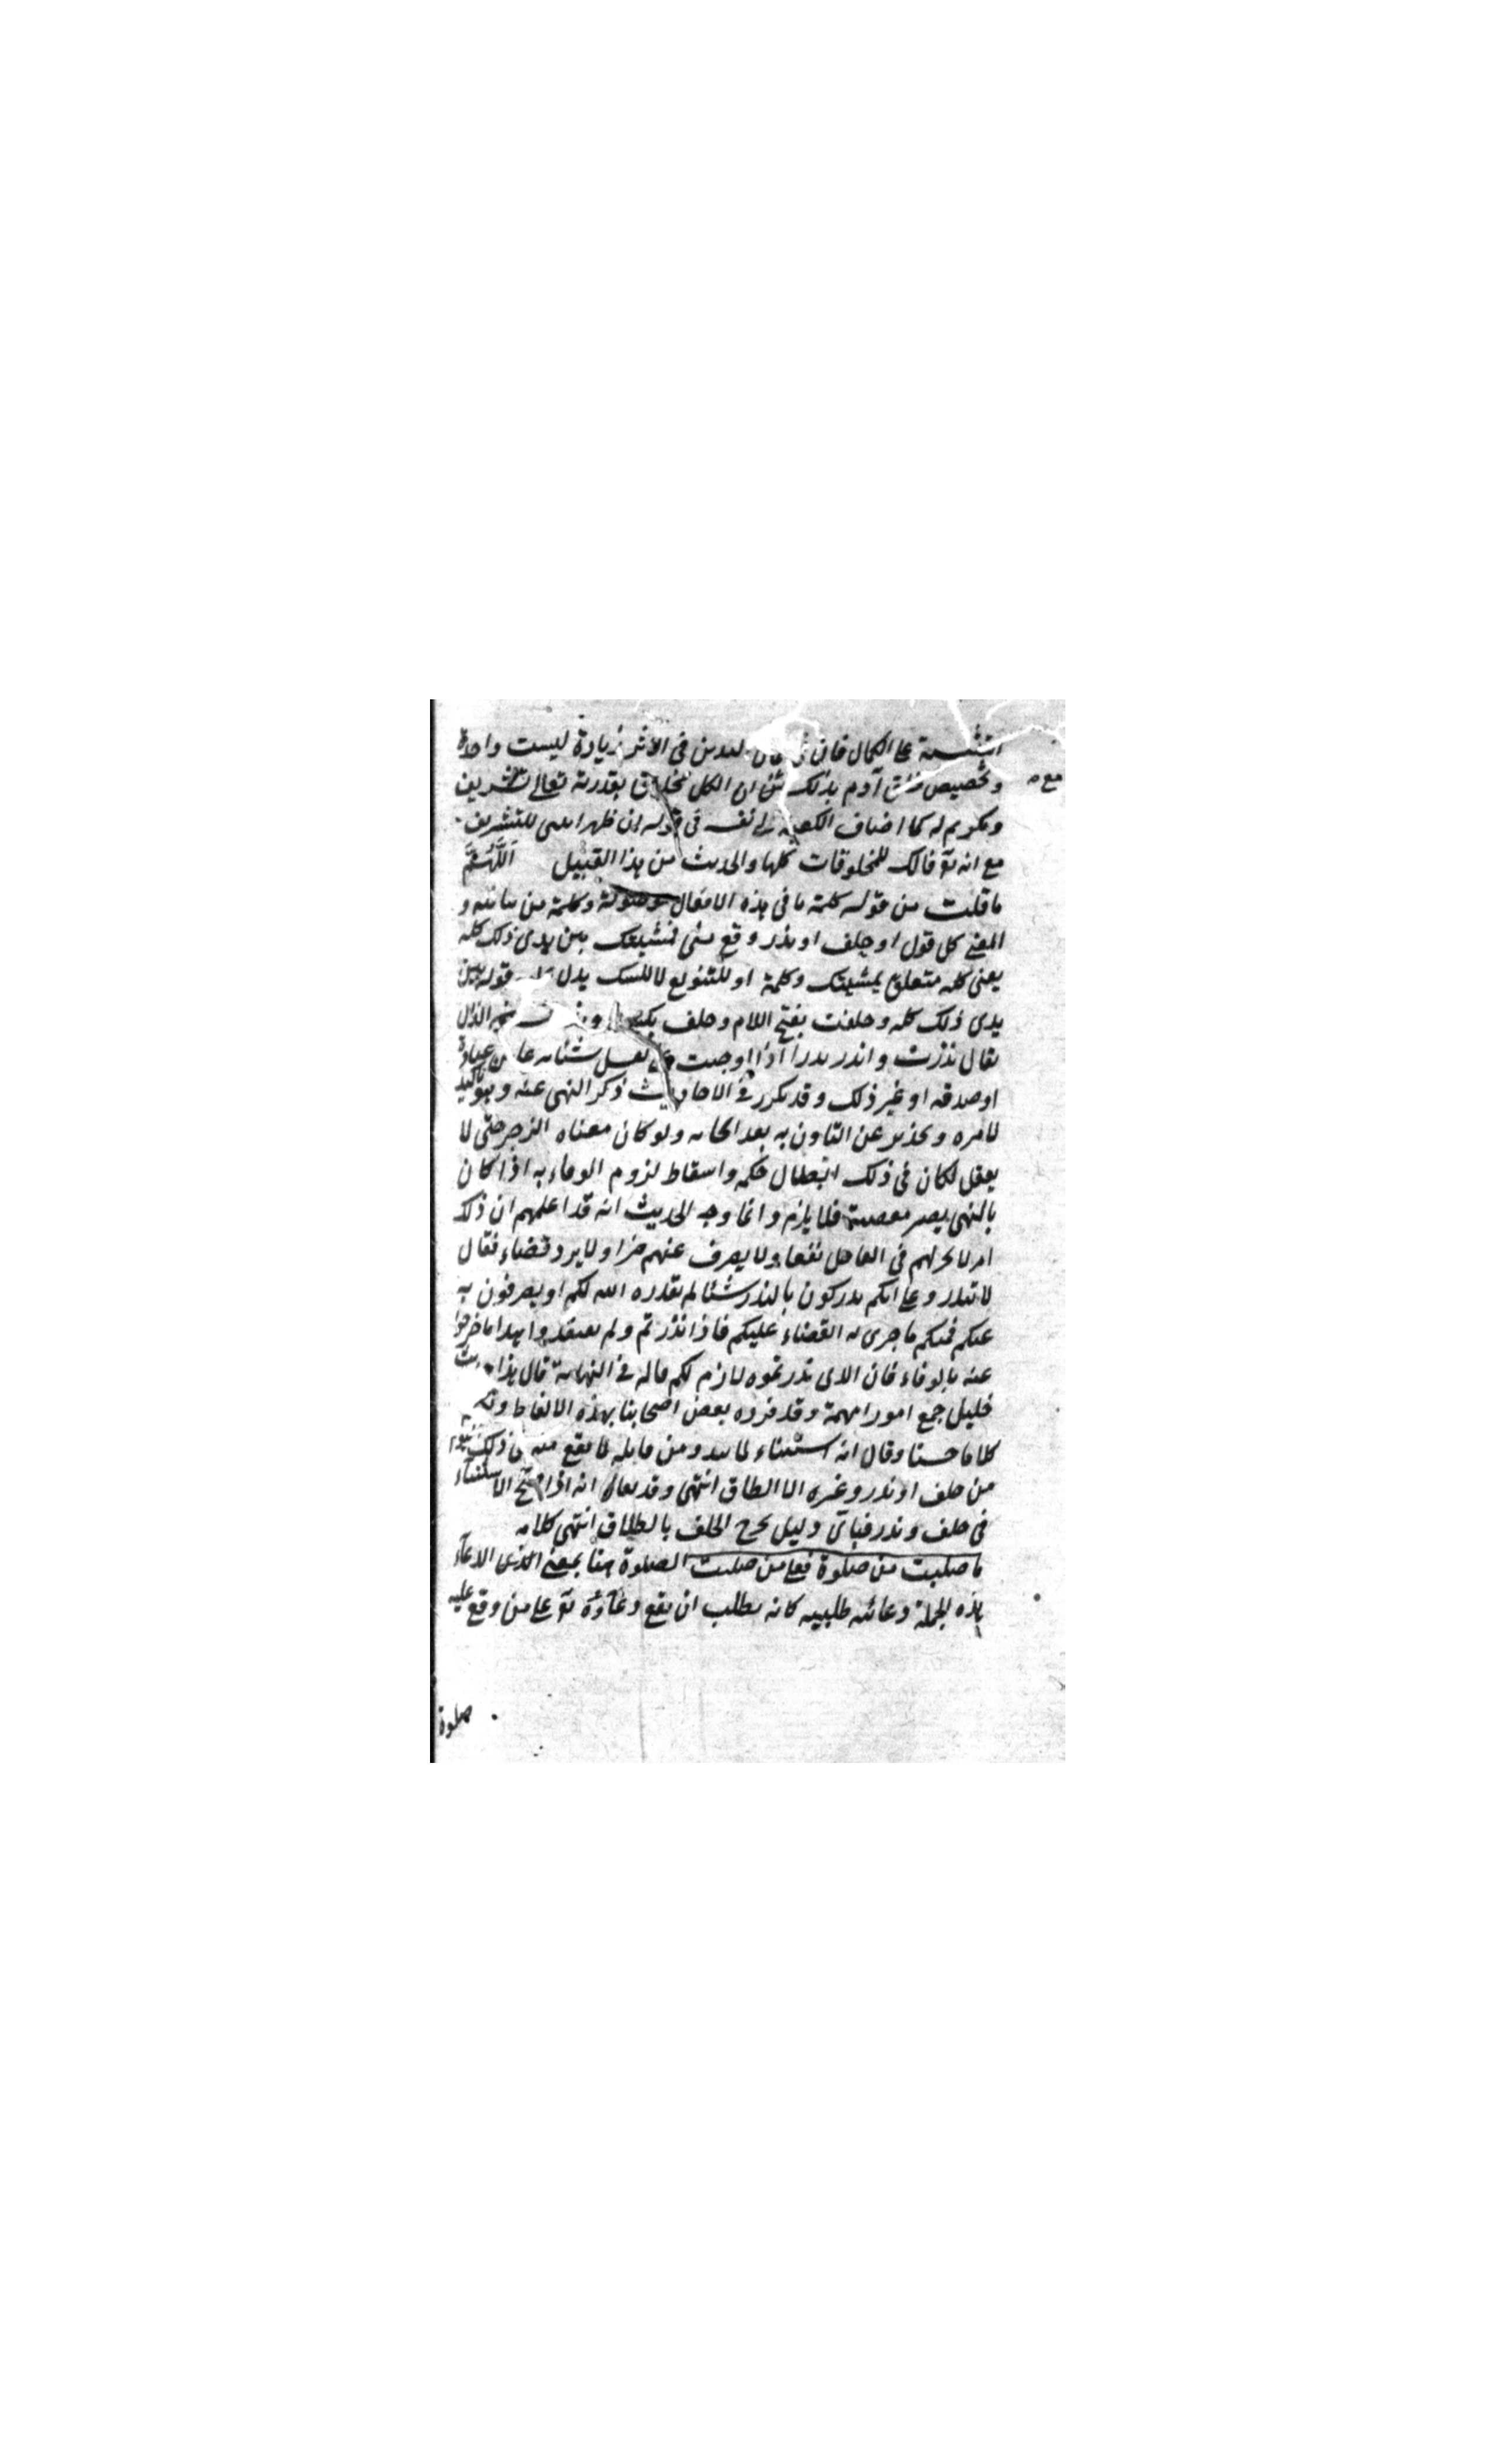 التثنية على الكمال فان في اليدين في الأثر زيادة ليست واحدة
مع
وتخصيص خلق آدم بذلك مع ان الكل مخلوق بقدرته تعالى تشريف
وتكريم له كما اضاف الكعبة الى نفسه في قوله ان طهرا بيتى للتشريف
مع انه تع مالك للمخلوقات كلها والحديث من هذا القبيل اَللّٰهُمَّ
ما قلت من قوله كلمة ما فى هذه الافعال موصولة وكلمة من بيانية و
المعنى كل قول او حلف او نذر وقع منى فمشيتك بين يدى ذلك كله
يعنى كله متعلق بمشيتك وكلمة او للتنويع لا للشك يدل قوله بين
يدى ذلك كله وحلفت بفتح اللام وحلف الذال
يقال نذرت وانذر نذرا اذا اوجبت على نفسك شيئا من عبادة
او صدقة او غير ذلك وقد تكرر فى الاحاديث ذكر النهى عنه وهو تاكيد
لامره وتحذير عن التهاون به بعد ايجابه ولو كان معناه الزجر حتى لا
يفعل لكان فى ذلك ابطال حكمه واسقاط لزوم الوفاء به اذا كان
بالنهى يصير معصية فلا يلزم وانما وجه الحديث انه قد اعلمهم ان ذلك
امر لا يجر لهم فى العاجل نفعا ولا يصرف عنهم ضرا ولا يرد قضاء فقال
لا تنذروا على انكم تدركون بالنذر شيئا لم يقدره الله لكم او يصرفون به
عنكم ما جرى به القضاء عليكم فاذا نذرتم ولم تعتقدوا هذا فاخرجوا
عنه بالوفاء فان الذى نذرتموه لازم لكم قاله فى النهاية قال هذا
جليل جمع امورا مهمة وقد افرده بعض اصحابنا بهذه الالفاظ
كلاما حسنا وقال انه استثناء لما يبدو من قائله لما يقع منه فى ذلك اليوم
من حلف او نذر وغيره الا الطلاق انتهى وقد يقال انه اذا صح الاستثناء
فى حلف ونذر فباى دليل يخرج الحلف بالطلاق انتهى كلامه
ما صليت من صلوة فعلى من صليت الصلوة هنا بمعنى الدعاء
هذه الجملة دعائية طلبية كانه يطلب ان يقع دعاؤه تع على من وقع عليه
صلوة